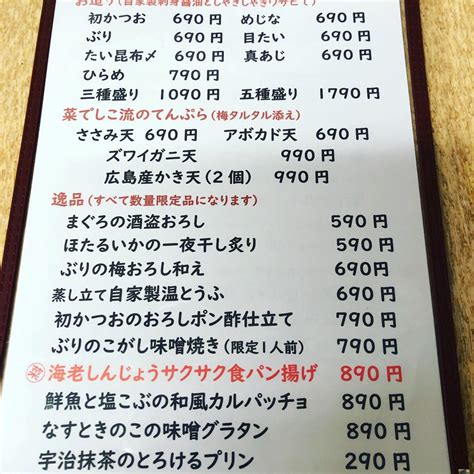 お造り(自家製刺身醤油としゃきしゃきワサビで)
初かつお 690円 めじな 690円
ぶり 690円 目たい 690円
たい昆布〆 690円 真あじ 690円
ひらめ 790円
三種盛り 1090円 五種盛り 1790円
菜でしこ流のてんぷら(梅タルタル添え)
ささみ天 690円 アボカド天 690円
ズワイガニ天 990円
広島産かき天(2個) 990円
逸品(すべて数量限定品になります)
まぐろの酒盗おろし 590円
ほたるいかの一夜干し炙り 590円
ぶりの梅おろし和え 690円
蒸し立て自家製温とうふ 690円
初かつおのおろしポン酢仕立て 790円
ぶりのこがし味噌焼き(限定1人前) 790円
海老しんじょうサクサク食パン揚げ 890円
鮮魚と塩こぶの和風カルパッチョ 890円
なすときのこの味噌グラタン 890円
宇治抹茶のとろけるプリン 290円